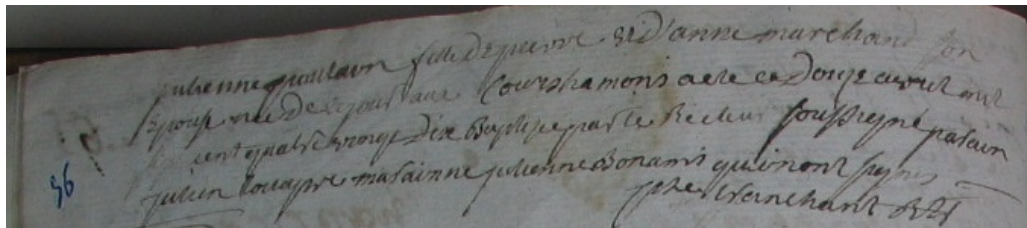 julienne poulain fille de pierre et d'anne marchand son
Epouse née de ce jour aux Courshamonts a ete ce Douze aout mil
cent quatre vingt Dix Baptisee par le Recteur soussigné parain
julien Louapre marainne julienne Bonamis qui n'ont signés
tranchant
96